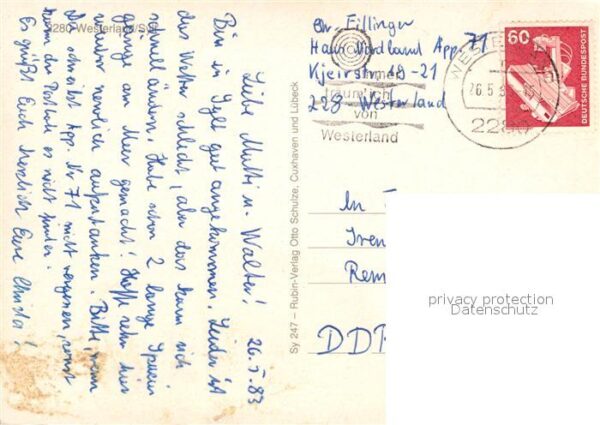 2280 Westerland/Sylt
26.5.83
Liebe Mutti u. Walter!
Bin in Sylt gut angekommen. Leider ist
das Wetter schlecht, aber das kann sich
schnell ändern. Habe schon 2 lange Spazier
gänge am Meer gemacht! Hoffe sehr hier
wieder nervlich aufzutanken. Bitte, wenn
Du schreibst App. Nr 71 nicht vergessen, sonst
kann das Postamt es nicht finden.
Es grüßt Euch herzlich Eure Christa!
Sy 247 – Rubin-Verlag Otto Schulze, Cuxhaven und Lübeck
Chr. Fillinger
Haus Nordland App. 71
Kjeirstr. 19-21
228 Westerland
traumlicht
von
Westerland
26.5.8
2280
60
DEUTSCHE BUNDESPOST
In
Iren
Rem
DDR
privacy protection
Datenschutz